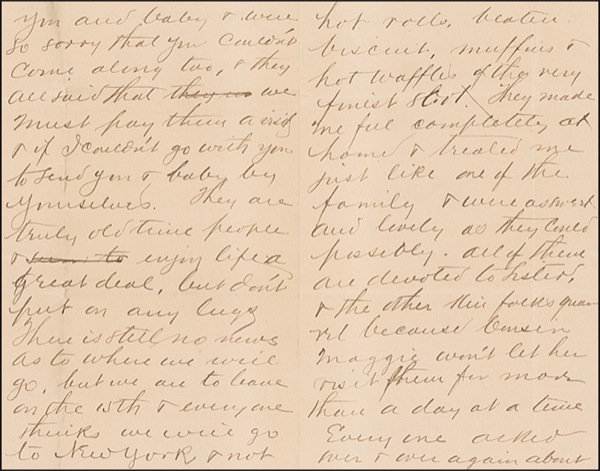 you and baby & were
so sorry that you couldn't
come along too, & they
all said that they we
must pay them a visit
& if I couldn't go with you
to send you & baby by
yourselves. They are
truly old time people
& seem to enjoy life a
great deal, but don't
put on any lugs
There is still no news
as to where we will
go, but we are to leave
on the 15th & everyone
thinks we will go
to New York & not
hot rolls, beaten
biscuit, muffins &
hot waffles of the very
finist sort. They made
me feel completely at
home & treated me
just like one of the
family & were as sweet
and lovely as they could
possibly. All of them
are devoted to Sister,
& the other kin folks quar
rel because Cousin
Maggie won't let her
visit them for more
than a day at a time
Everyone asked
over & over again about